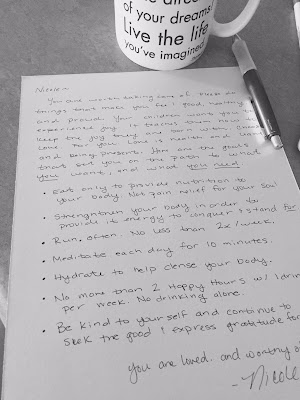 of your dreams!
Live the life
you've imagined.
Nicole -
You are worth taking care of. Please do
things that make you feel good, healthy
and proud. Your children want you to
experience joy
keep the joy they are born with
Love. For you. Love is
and being present. These are the goals
that set you on the path to what
you want, and what you need
• Eat only to provide nutrition to
your body. Not pain relief for your soul
• Strengthen your body in order to
provide it energy to conquer & stand for
• Run. Often. No less than 2x/week.
• Meditate each day for 10 minutes.
• Hydrate to help clense your body.
• No more than 2 Happy Hours w/ 1 drin
per week. No drinking alone.
• Be kind to yourself and continue to
seek the good & express gratitude for
You are loved. and worthy o
- Nicole